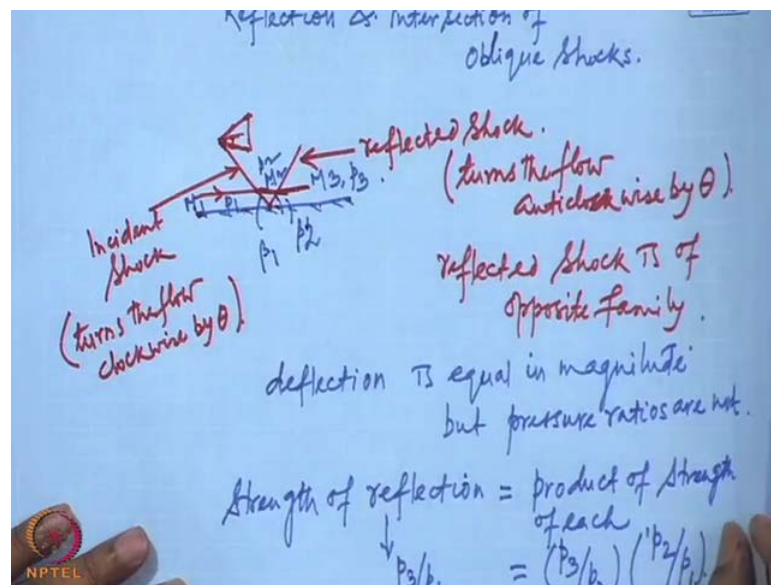 Reflection & intersection of
Oblique shocks.
reflected shock.
(turns the flow
anticlockwise by θ)
p2
M2
M3, p3.
M1 p1
β1 β2
Incident
shock
(turns the flow
clockwise by θ)
reflected shock is of
opposite family.
deflection is equal in magnitude
but pressure ratios are not.
Strength of reflection = product of strength
of each
p3/p = (p3/p ) (p2/p )
NPTEL